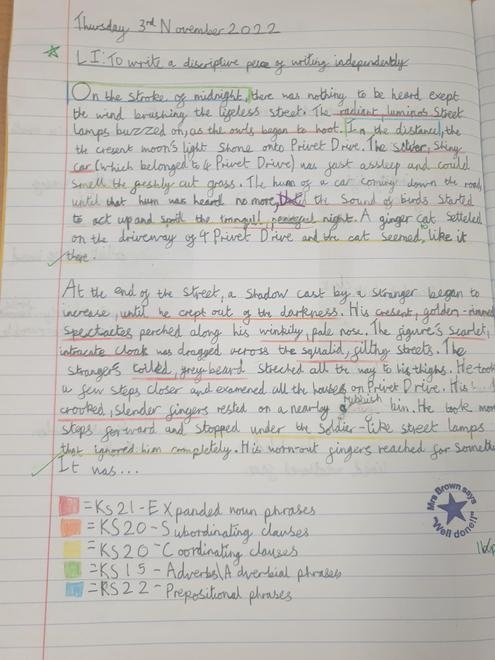 Thursday 3rd November 2022
LI: To write a discriptive peice of writing independently.
On the stroke of midnight, there was nothing to be heard exept
the wind brushing the lifeless street. The radiant luminos street
lamps buzzed on, as the owls began to hoot. In the distance, the
the cresent moon's light shone onto Privet Drive. The silver, shiny
car (which belonged to 4 Privet Drive) was fast assleep and could
smell the freshly cut grass. The hum of a car coming down the road
until that hum was heard no more, the sound of birds started
to act up and spoil the tranquil, peaceful night. A ginger cat setteled
on the driveway of 4 Privet Drive and the cat seemed to like it
there.
At the end of the street, a shadow cast by a stranger began to
increase, until he crept out of the darkness. His cresent, golden-rimmed
spectacles perched along his winkily, pale nose. The figure's scarlet,
intracate cloak was dragged across the squalid, filthy streets. The
strangers coiled, grey beard streched all the way to his thighs. He took
a few steps closer and examened all the houses on Privet Drive. His
crooked, slender fingers rested on a nearby rubbish bin. He took more
steps forward and stopped under the soldier-like street lamps
that ignored him completely. His worn-out fingers reached for
It was...
= KS21 - EXpanded noun phrases
= KS20 - Subordinating clauses
= KS20 - Coordinating clauses
= KS15 - Adverbs\Adverbial phrases
= KS22 - Prepositional phrases
Mrs Brown says
"Well done!"